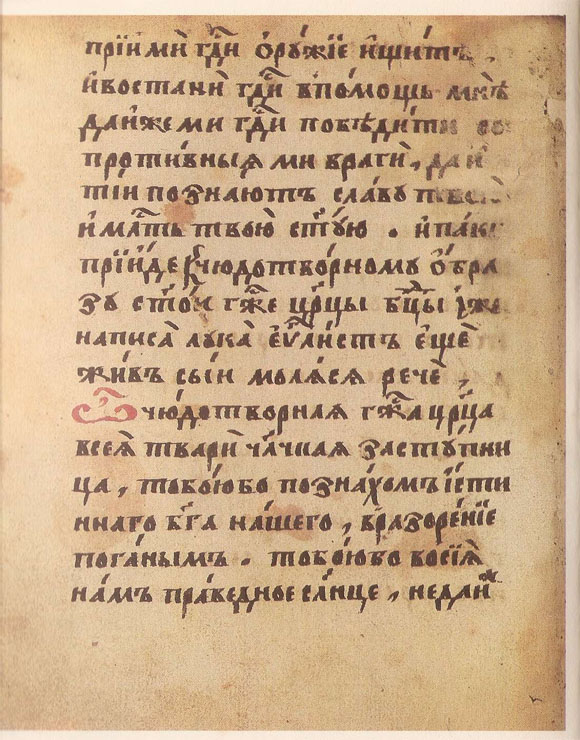 прїими гд҃и ѻрꙋжїе ищитъ,
ивостани гд҃и впомощь мнѣ
даижеми гд҃и побѣдити со
противныѧ ми враги, даи
тїи познаютъ славꙋ твою
имлт҃ь твою ст҃ꙋю . ипаки
прїиде кчюдотворномꙋ ѻбра
зꙋ гж҃е цр҃цы бц҃ы иже
написа лꙋка еѵ҃листъ еще
живъ сыи молѧсѧ рече,
ѽ чюдотворнаѧ гж҃а цр҃ца
всеѧ твари чл҃чнаѧ застꙋпни
ца, тобоюбо познахомъ їсти
ннаго бг҃а нашего, вразоренїе
поганымъ . тобоюбо восїѧ
намъ праведное сл҃нце, недаи